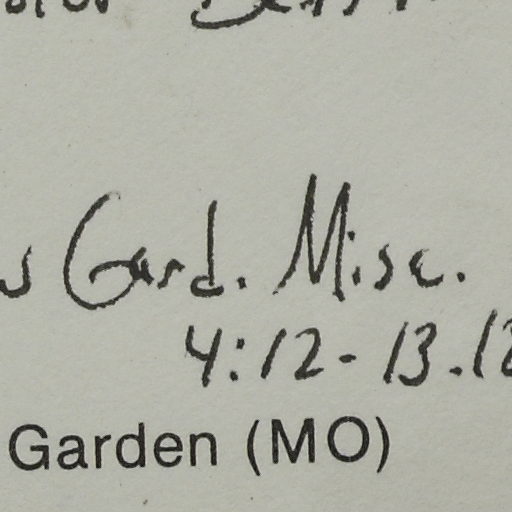 Gard. Misc.
4:12-13.18
Garden (MO)